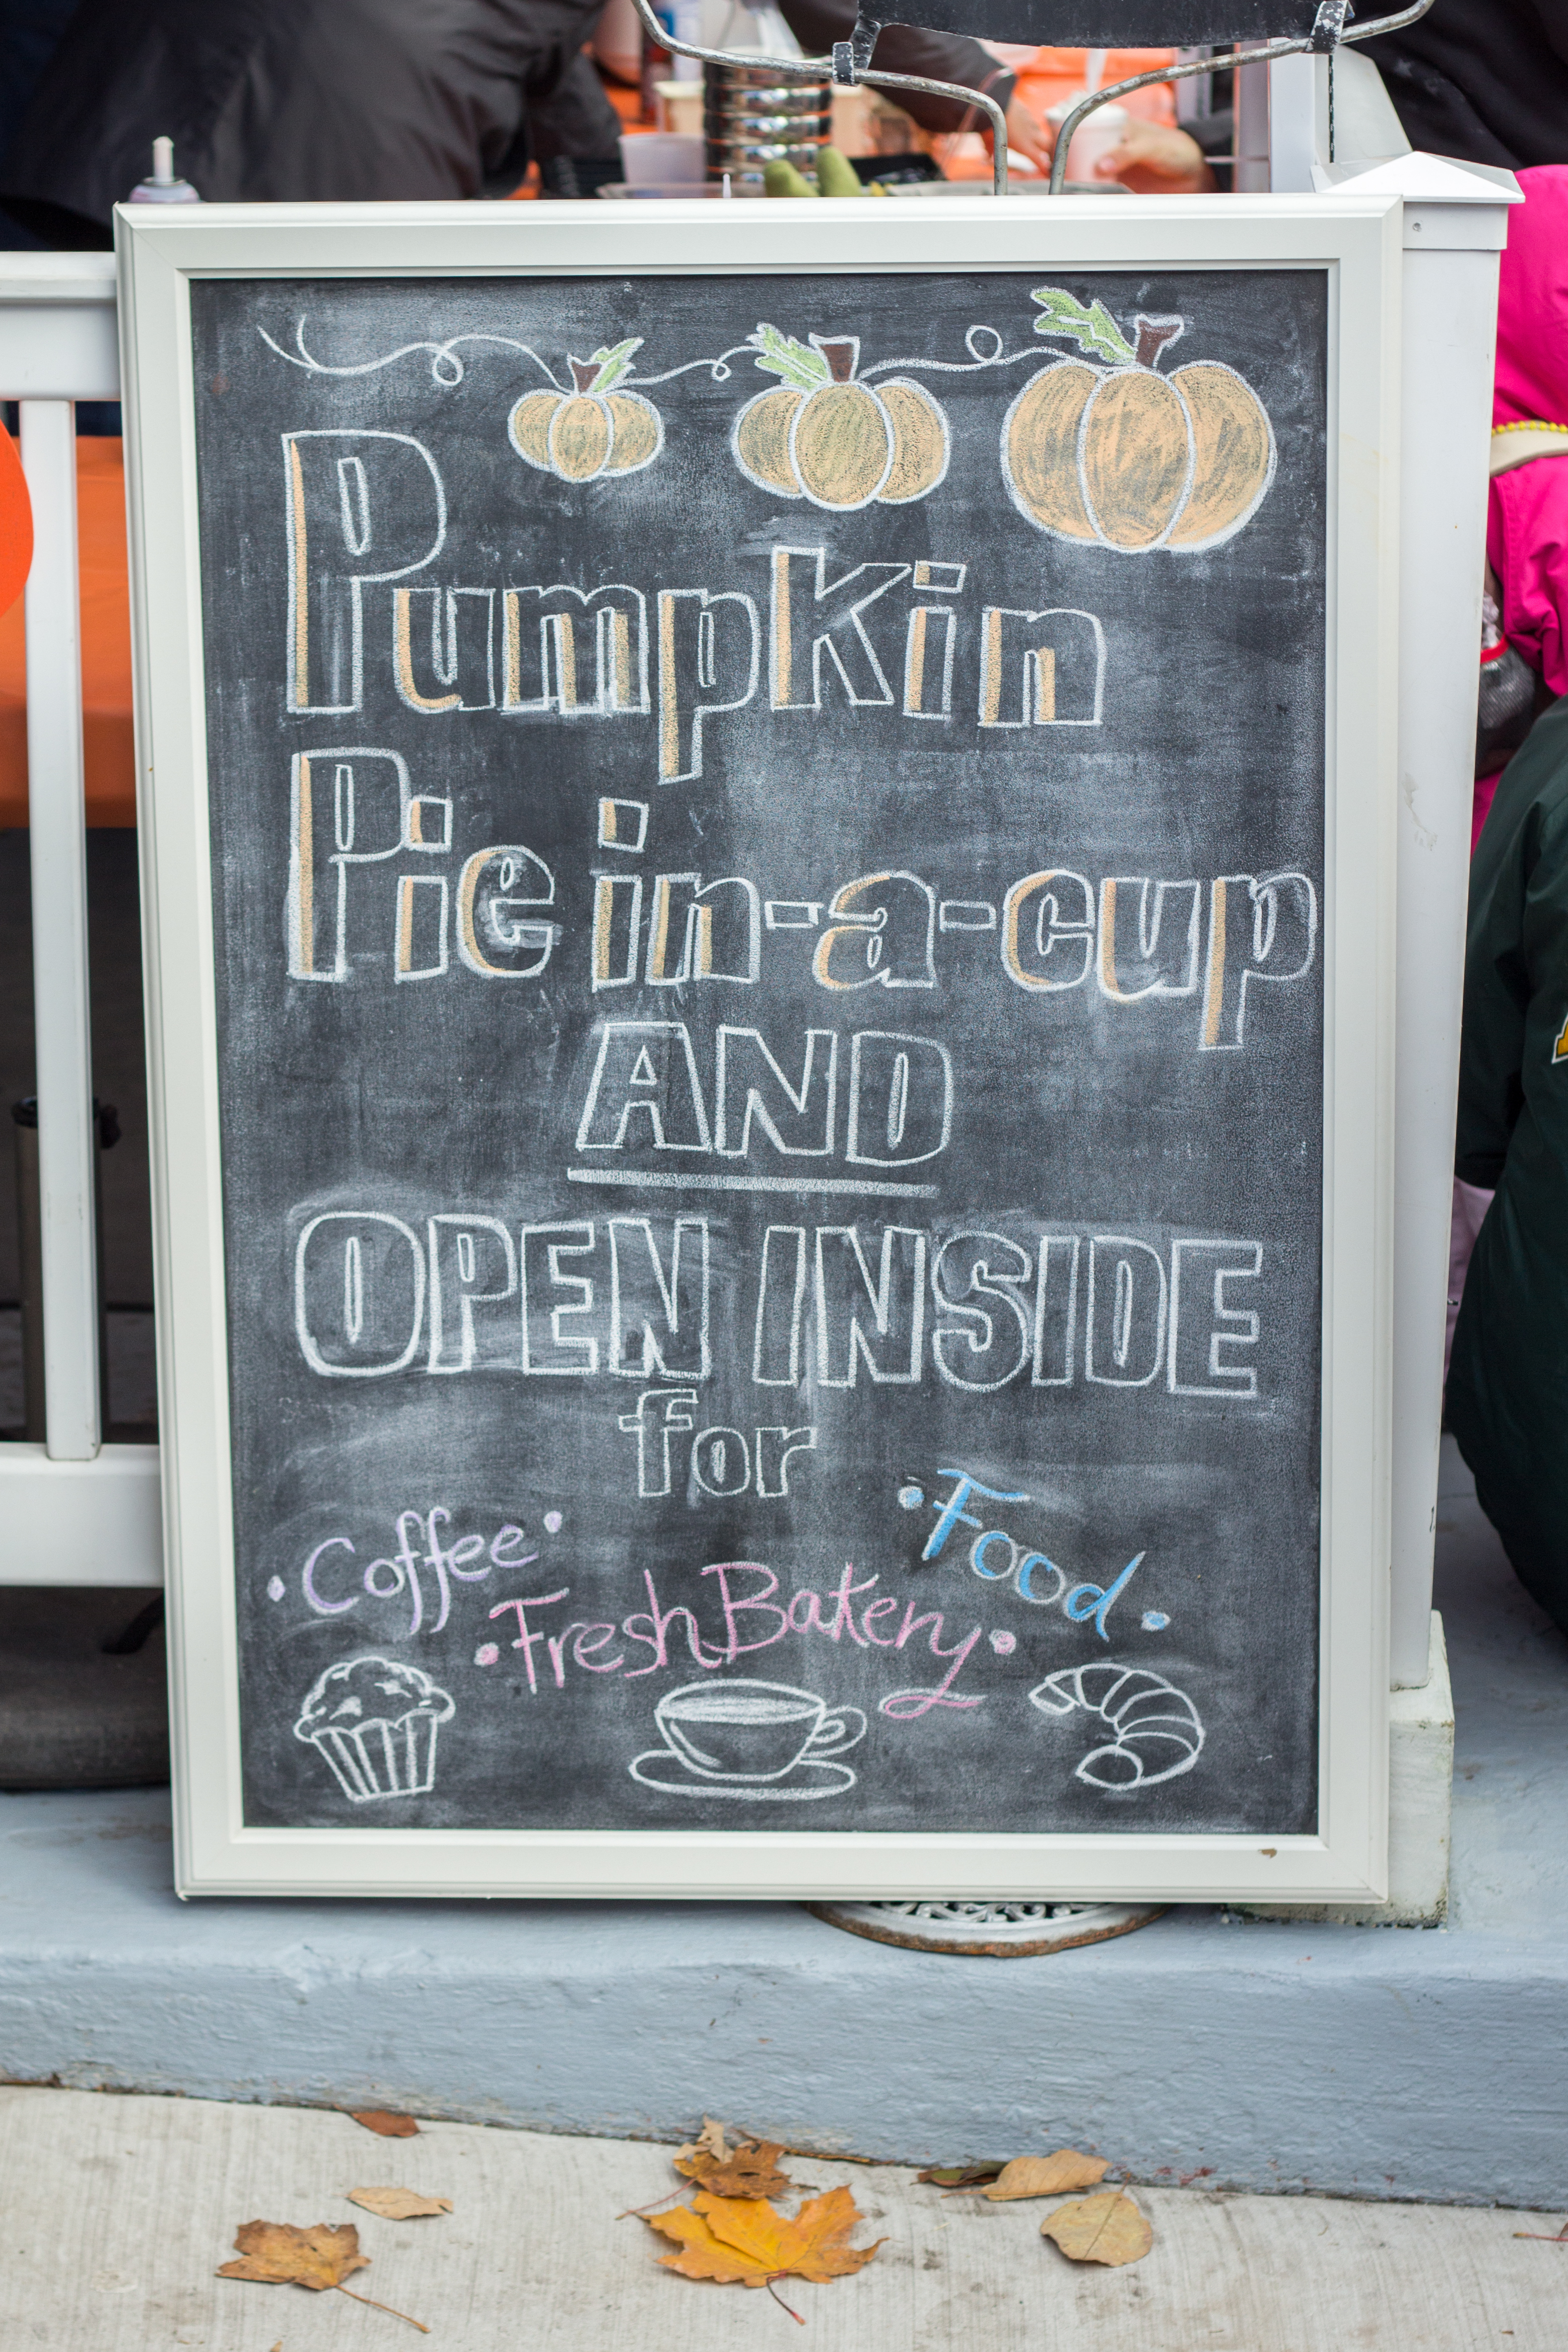 Pumpkin
Pie in-a-cup
AND
OPEN INSIDE
for
•Coffee•
•Food•
•Fresh Bakery•